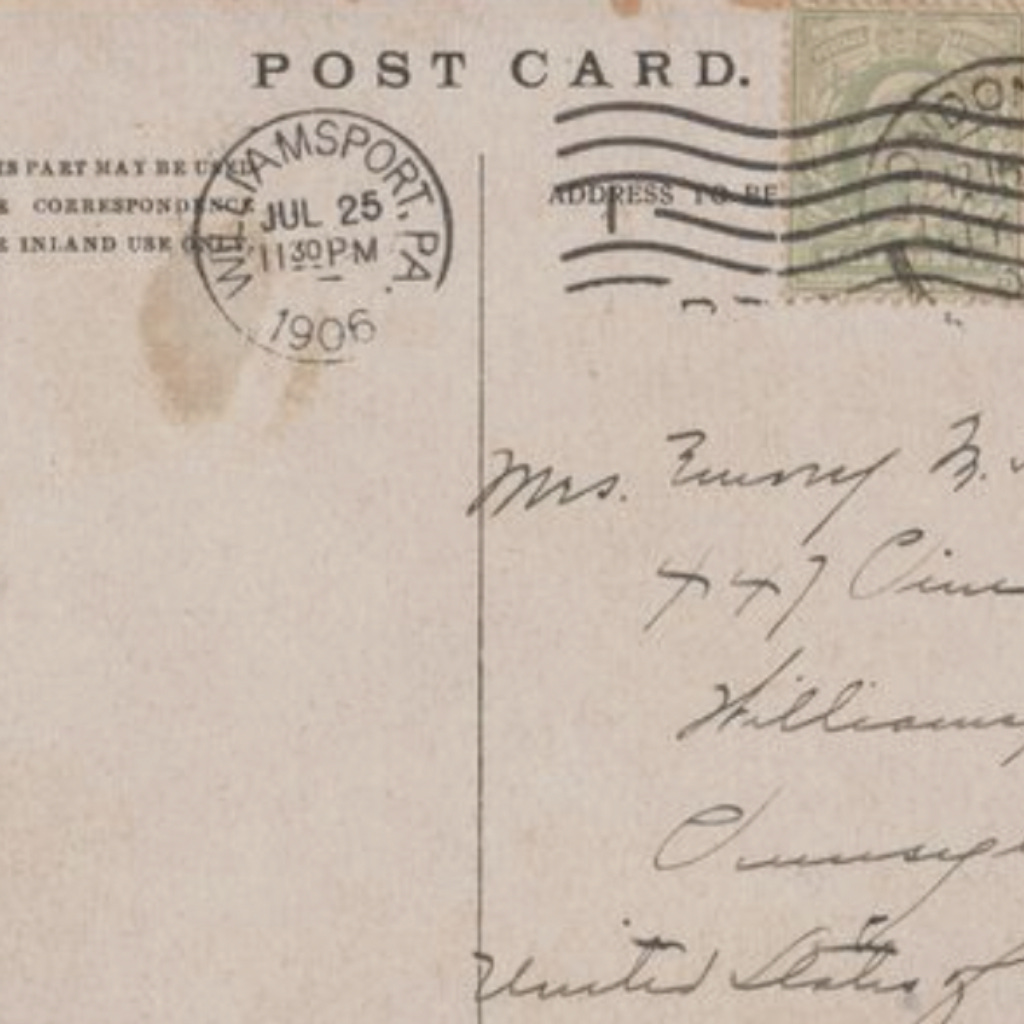 POST CARD.
IS PART MAY BE USED
CORRESPONDENCE
INLAND USE ONLY.
WILLIAMSPORT, PA.
JUL 25
11 30 PM
1906
ADDRESS TO BE
Mrs. Emory M.
447 Pine
Williams
Pennsy
United States of